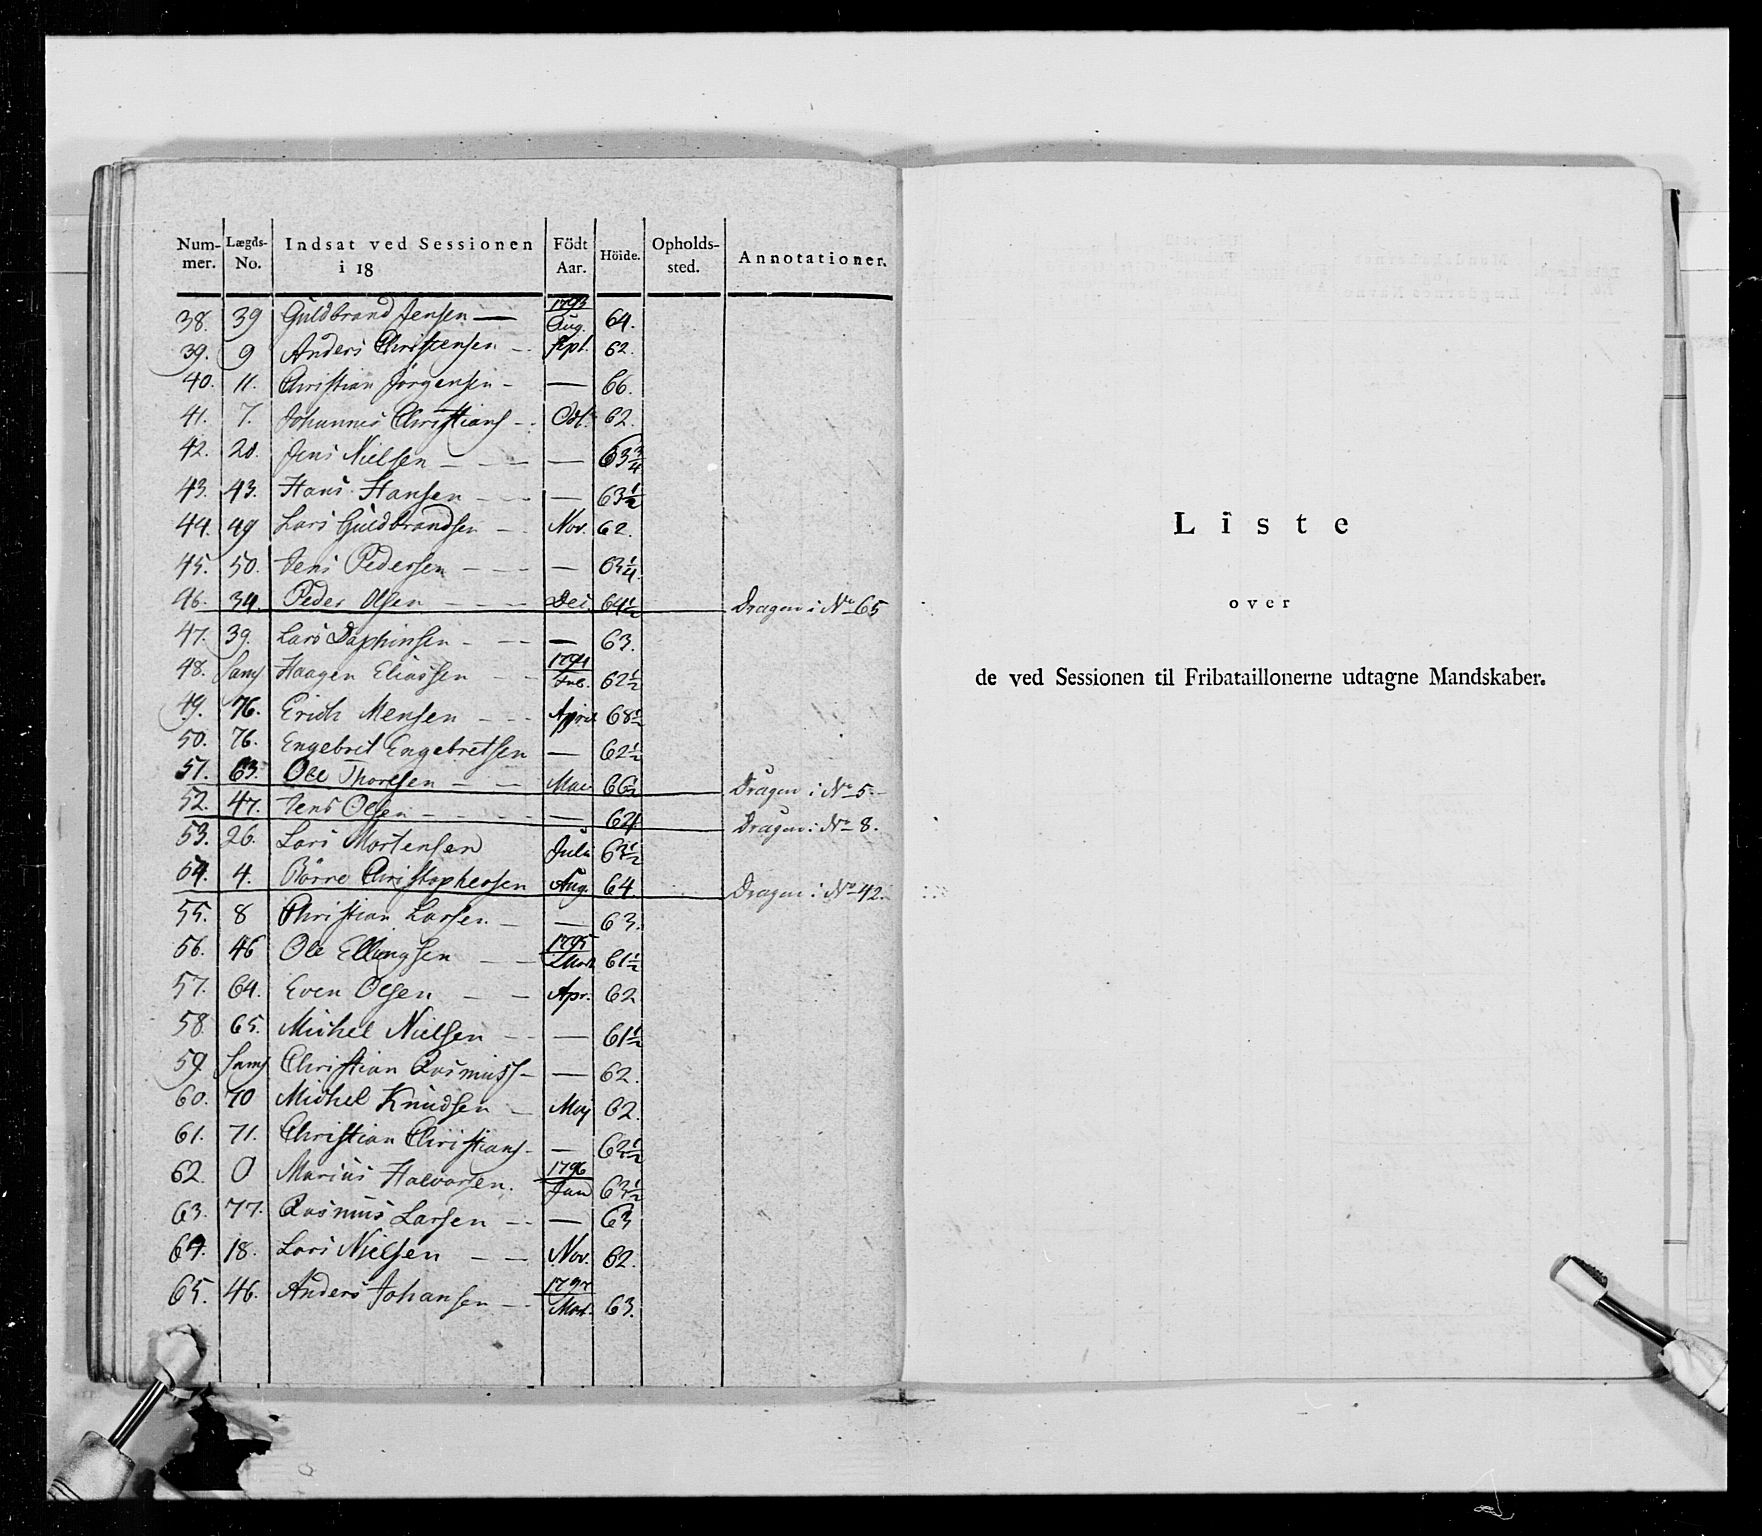 Num- Lægds- Indsat ved Sessionen Födt Höide. Opholds- Annotationer.
mer. No. i 18 Aar. sted.
1793
38. 39 Guldbrand Jensen — Aug. 64.
39. 9 Anders Christensen - Sept. 62.
40. 11. Christian Jörgensen - — 66.
41. 7. Johannes Christians - Oct. 62.
42. 20. Jens Nielsen - — 63 3/4
43. 43. Hans Hansen - — 63 1/2
44. 49 Lars Guldbrandsen - Nov. 62.
45. 50. Jens Pedersen - — 63 1/4
46. 34. Peder Olsen - Dec. 64 1/2 Dragon i No 65
47. 39. Lars - — 63.
1794
48. Sam Haagen Eliassen - Feb. 62 1/2
49. 76. Erich Mensen - April 68 1/2
50. 76. Engebret Engebretsen — 62 1/2
51. 63. Ole Thorsen - Mai 66 1/2 Dragon i No 5.
52. 47. Jens Olsen - — 64 Dragon i No 8.
53. 26. Lars Mortensen Juli 63 1/2
54. 4. Börre Christophersen Aug. 64 Dragon i No 42.
55. 8 Christian Larsen - — 63.
1795
56. 46 Ole Ellingsen - Mart 61 1/2
57. 64. Even Olsen - Apr. 62
58 65. Michel Nielsen - — 61 1/2
59. Sam Christian Rasmuss - — 62.
60. 70 Michel Knudsen - Maj 62.
61. 71. Christian Christians - — 62 1/2
1796
62. 0 Marius Halvorsen. Jan 63 1/2
63. 77. Rasmus Larsen - — 63
64. 18. Lars Nielsen - Nov. 62.
1797
65. 46. Anders Johansen - Mart. 63.
Liste
over
de ved Sessionen til Fribataillonerne udtagne Mandskaber.